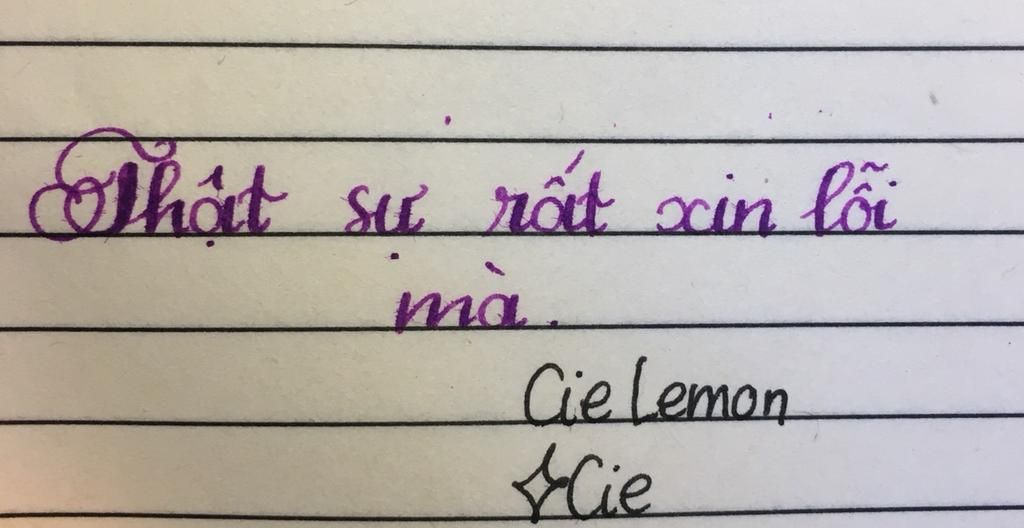 Thật sự rất xin lỗi
mà.
Cie Lemon
✧Cie